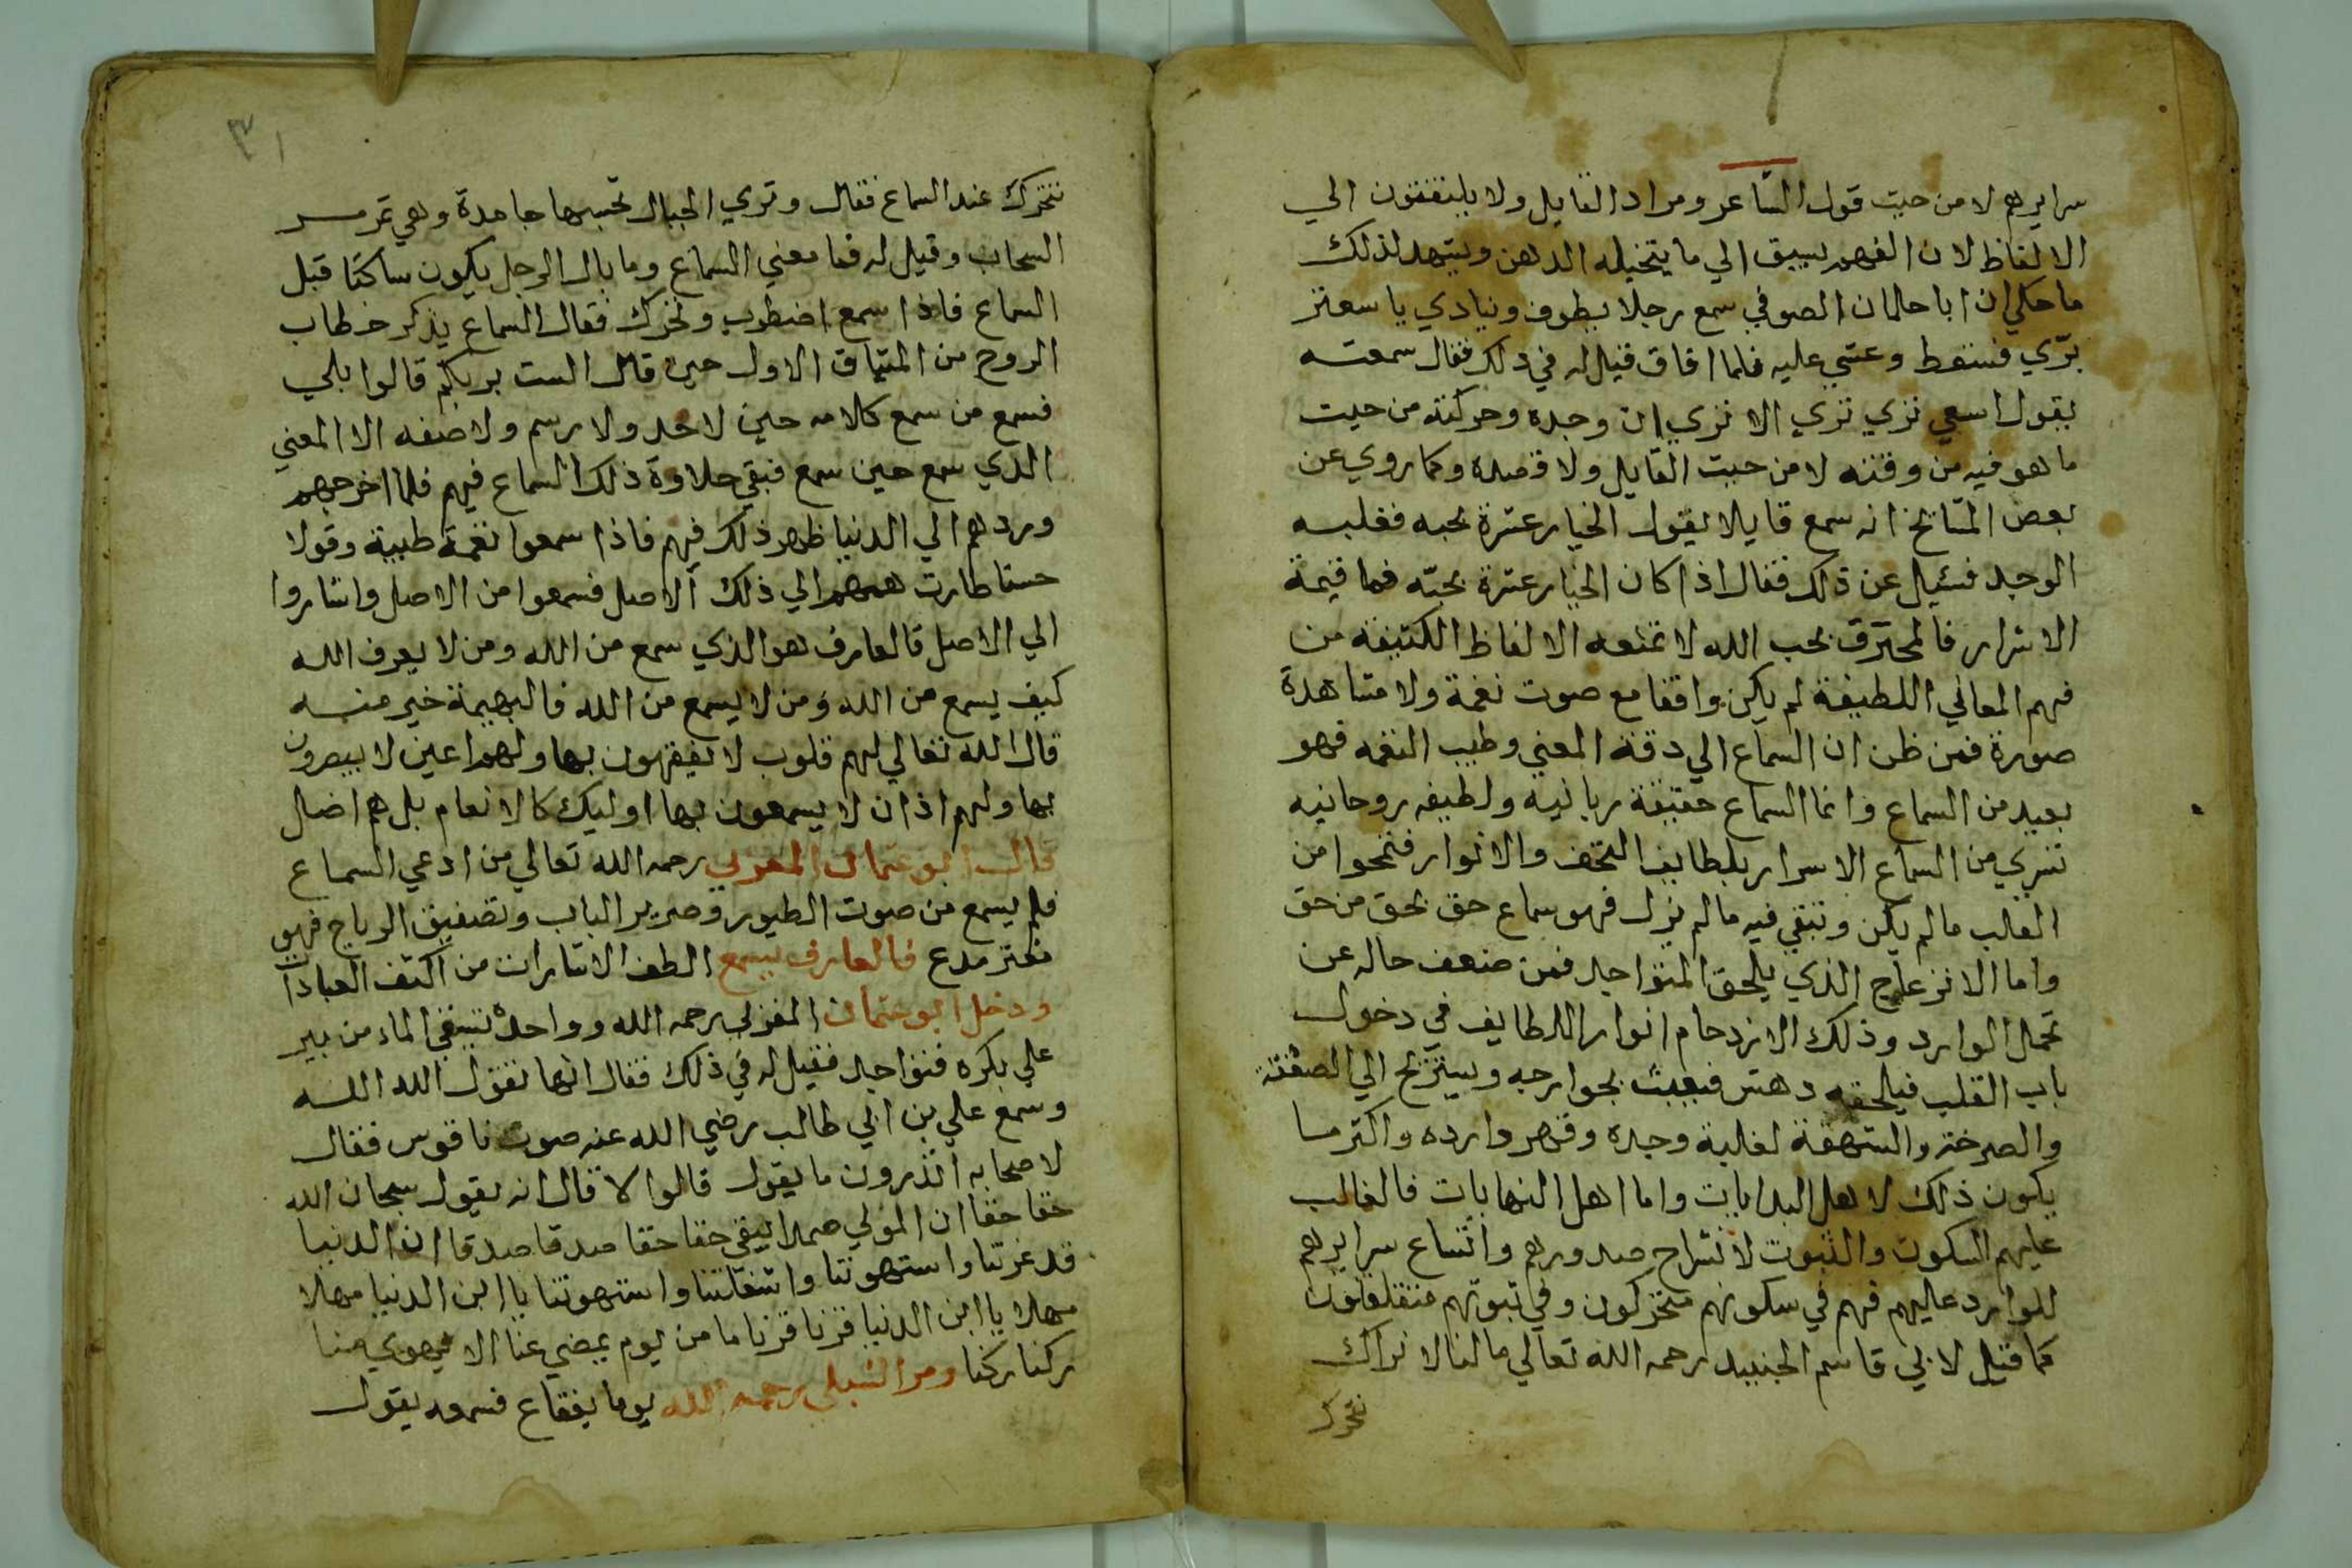 سرايرهم لا من حيث قول الشاعر ومراد القايل ولا يلتفتون الي
الالفاظ لان الفهم يسبق الي ما يتخيله الذهن ويشهد لذلك
ما حكي ان ابا حلمان الصوفي سمع رجلا يطوف وينادي يا سعتر
برّي فسقط وغشي عليه فلما افاق قيل له في ذلك فقال سمعته
يقول اسعي تري تري الا تري ان وجده وحركته من حيث
ما هو فيه من وقته لا من حيث القايل ولا قصده وكما روي عن
بعض المشايخ انه سمع قايلا يقول الخيار عشرة بحبه فغلبه
الوجد فسئيل عن ذلك فقال اذا كان الخيار عشرة بحبّه فما قيمة
الاشرار فالمحترق بحب الله لا تمنعه الالفاظ الكثيفة من
فهم المعاني اللطيفة لم يكن واقفا مع صوت نغمة ولا مشاهدة
صورة فمن ظن ان السماع الي دقة المعني وطيب النغمه فهو
بعيد من السماع وانما السماع حقيقة ربانيه ولطيفه روحانيه
تسري من السماع الاسرار بلطايف التحف والانوار فتمحوا من
القلب ما لم يكن وتبقي فيه ما لم يزل فهو سماع حق بحق من حق
واما الانزعاج الذي يلحق المتواجد فمن ضعف حاله عن
تحمل الوارد وذلك الازدحام انوار اللطايف في دخول
باب القلب فيلحقه دهش فيعبث بجوارحه ويستريح الي الصعقة
والصرخة والشهقة لغلبة وجده وقهر وارده واكثر ما
يكون ذلك لاهل البدايات واما اهل النهايات فالغالب
عليهم السكون والثبوت لانشراح صدورهم واتساع سرايرهم
للوارد عليهم فهم في سكونهم متحركون وفي ثبوتهم متقلقلون
كما قيل لابي قاسم الجنيد رحمه الله تعالي مالنا لا نراك
تتحرك
٣١
تتحرك عند السماع فقال وتري الجبال تحسبها جامدة وهي تمر مر
السحاب وقيل له فما معني السماع وما بال الرجل يكون ساكنا قبل
السماع فاذا سمع اضطرب وتحرك فقال السماع يذكر خطاب
الروح من الميثاق الاول حين قال الست بربكم قالوا بلي
فسمع من سمع كلامه حين لا حد ولا رسم ولا صفه الا المعني
الذي سمع حين سمع فبقي حلاوة ذلك السماع فيهم فلما اخرجهم
وردهم الي الدنيا ظهر ذلك فيهم فاذا سمعوا نغمة طيبة وقولا
حسنا طارت هممهم الي ذلك الاصل فسمعوا من الاصل واشاروا
الي الاصل فالعارف هو الذي سمع من الله ومن لا يعرف الله
كيف يسمع من الله ومن لا يسمع من الله فالبهيمة خير منه
قال الله تعالي لهم قلوب لا يفقهون بها ولهم اعين لا يبصرون
بها ولهم اذان لا يسمعون بها اوليك كالانعام بل هم اضل
قال ابو عثمان المغربي رحمه الله تعالي من ادعي السماع
فلم يسمع من صوت الطيور وصرير الباب وتصفيق الرياح فهو
مفتر مدع فالعارف يسمع الطف الاشارات من اكثف العبادات
ودخل ابو عثمان المغربي رحمه الله وواحد يستقي الماء من بير
علي بكره فتواجد فقيل له في ذلك فقال انها تقول الله الله
وسمع علي بن ابي طالب رضي الله عنه صوت ناقوس فقال
لاصحابه اتدرون ما يقول قالوا لا قال انه يقول سبحان الله
حقا حقا ان المولي صمدا يبقي حقا حقا صدقا صدقا ان الدنيا
قد غرتنا واستهوتنا واشغلتنا واستهوتنا يا ابن الدنيا مهلا
مهلا يا ابن الدنيا قرنا قرنا ما من يوم يمضي عنا الا يهوي منا
ركنا ركنا ومر الشبلي رحمه الله يوما بفقاع فسمعه يقول